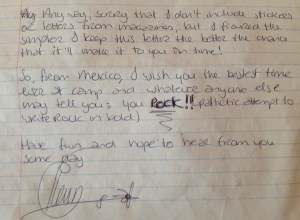 Anyway, sorry that I don't include stickers
or letters from magazines, but I figured the
simpler I keep this letter the better the chance
that it'll make it to you on time!
So, from Mexico, I wish you the bestest time
ever at camp and whatever anyone else
may tell you: you ROCK!! (pathetic attempt to
write rock in bold)
Have fun and hope to hear from you
some day